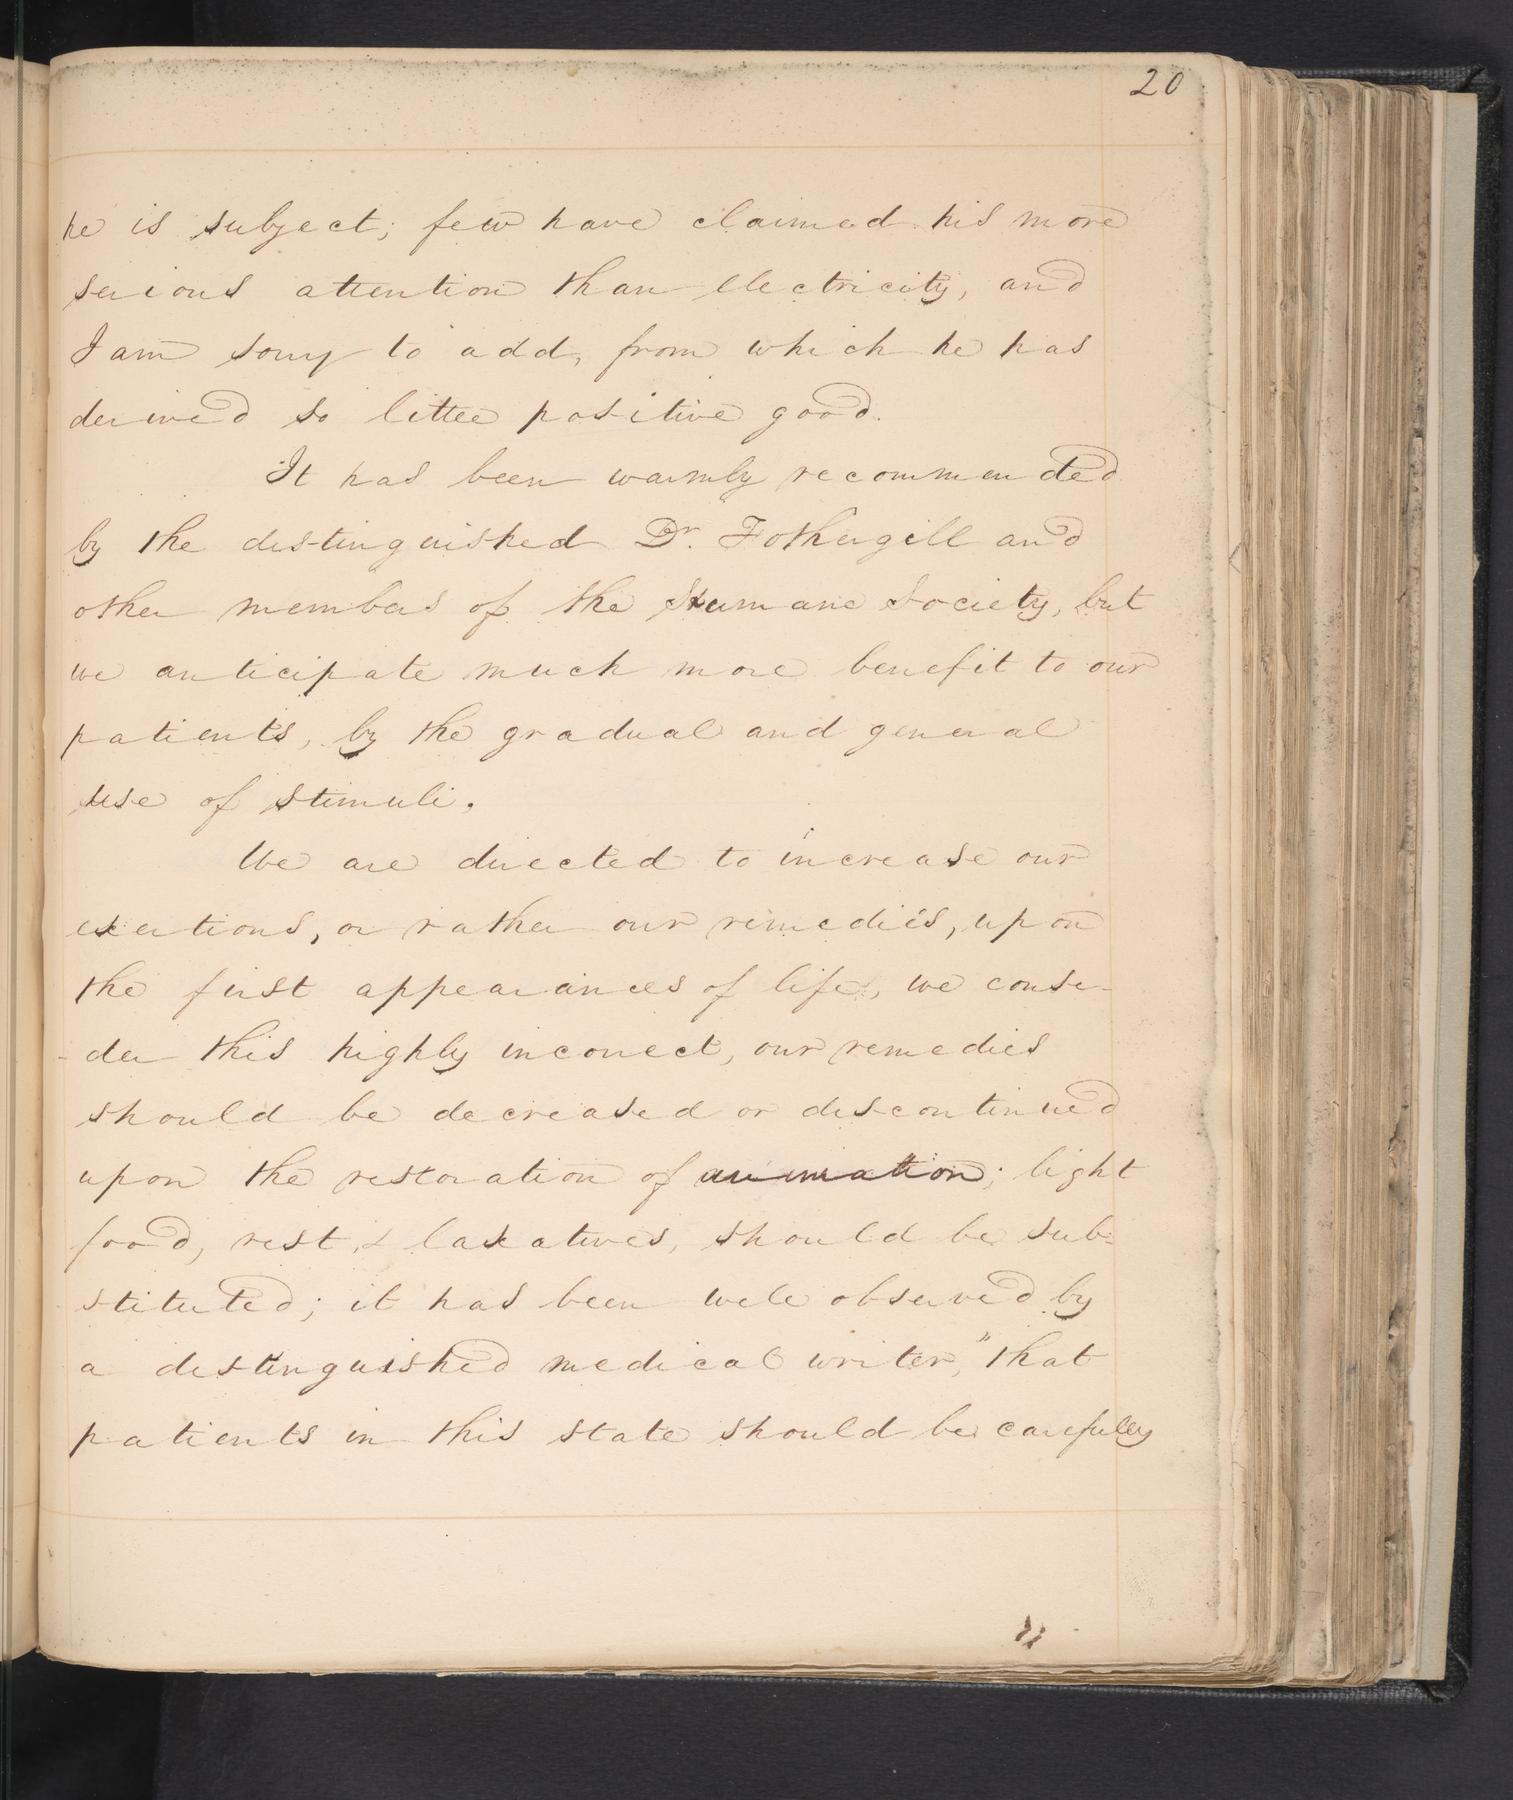 20
he is subject; few have claimed his more
serious attention than electricity, and
I am sorry to add, from which he has
derived so little positive good.
It has been warmly recommended
by the distinguished Dr. Fothergill and
other members of the Humane Society, but
we anticipate much more benefit to our
patients, by the gradual and general
use of stimuli.
We are directed to increase our
exertions, or rather our remedies, upon
the first appearances of life, we consi-
-der this highly incorrect, our remedies
should be decreased or discontinued
upon the restoration of animation; light
food, rest, & laxatives, should be sub-
stituted; it has been well observed by
a distinguished medical writer, "that
patients in this state should be carefully